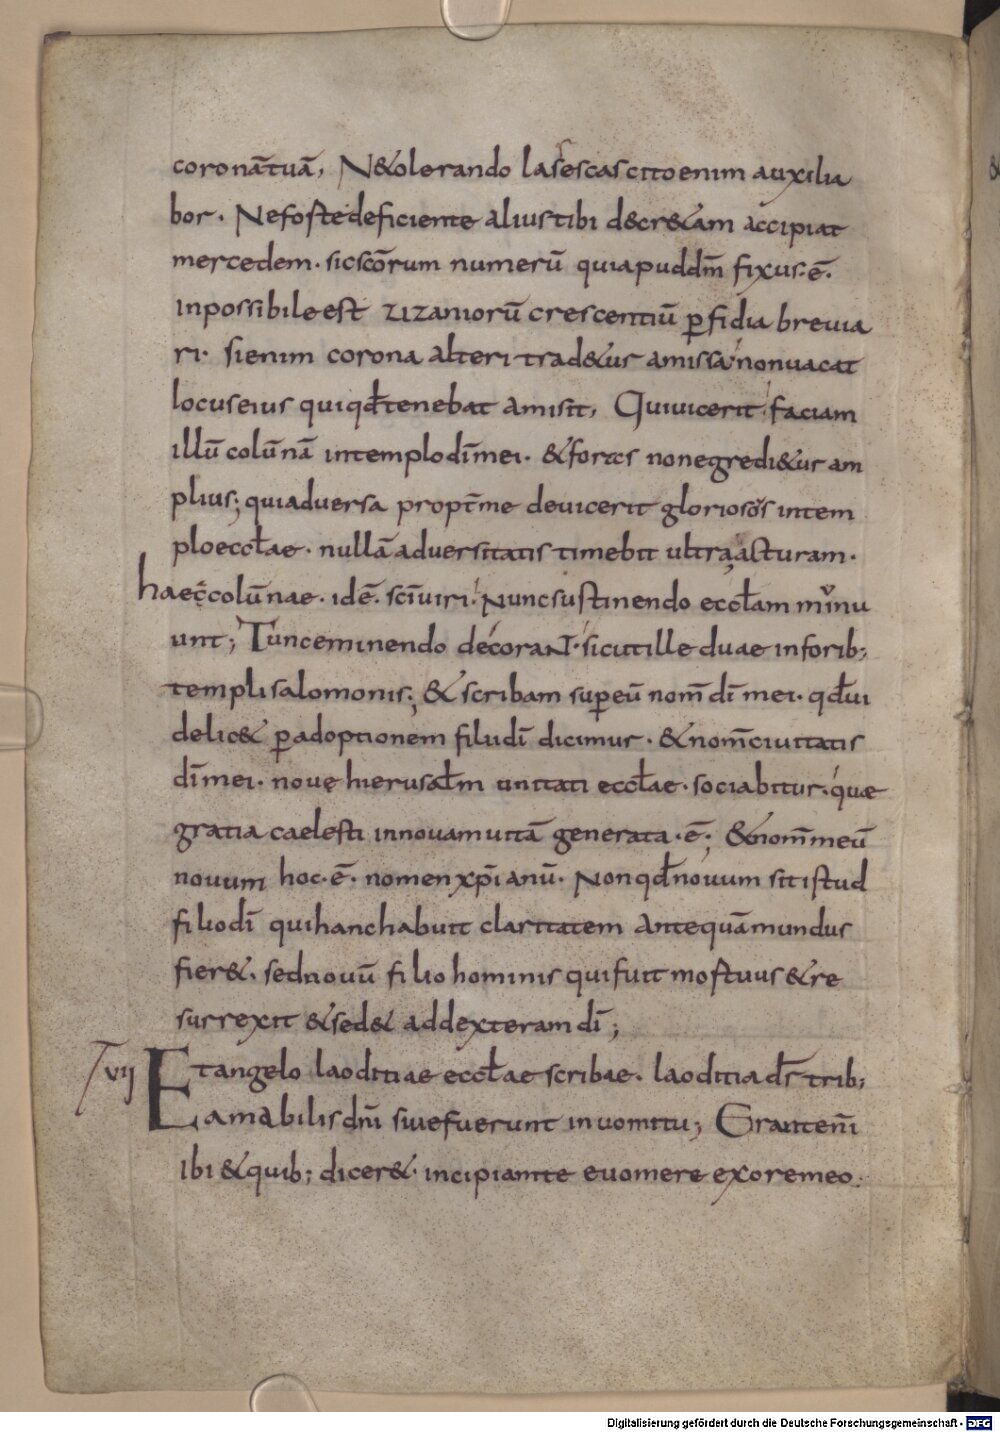 coronātuā, N&olerando lasescas cito enim auxilia
bor. Ne foste deficiente alius tibi decr&am accipiat
mercedem. sic scōrum numerū quia pud dm̄ fixus.ē.
inpossibile est zizaniorū crescentiū ꝑfidia breuia
ri. si enim corona alteri trad&ur amissa nonuacat
locus eius qui qđ tenebat amisit, Qui uicerit faciam
illū colūnā in templo dī mei. & foras non egredi&ur am
plius; qui aduersa propt̄ me deuicerit gloriosus in tem
plo eccłae. nullā aduersitatis timebit ultra iacturam.
haec colūnae. id ē. scī uiri. Nunc sustinendo eccłam muni
unt; Tunc eminendo decoraNt. sicut ille duae in forib;
templi salomonis; & scribam suꝑ eū nom̄ dī mei. qđ ui
delic& ꝑ adoptionem filii dī dicimur. & nom̄ ciuitatis
dī mei. nouę hierusałm unitati eccłae. sociabitur. quae
gratia caelesti in nouam uitā generata.ē; & nom̄ meū
nouum hoc.ē. nomen xp̄ianū. Non qđ nouum sit istud
filio dī qui hanc habuit claritatem antequā mundus
fier&. sed nouū filio hominis qui fuit mortuus & re
surrexit & sed& ad dexteram dī;
vij Et angelo laoditiae eccłae scribae. laoditiađs trib;
amabilis dn̄i siue fuerunt in uomitu; Erant enī
ibi & quib; dicer&. incipiam te euomere ex ore meo.
Digitalisierung gefördert durch die Deutsche Forschungsgemeinschaft - DFG